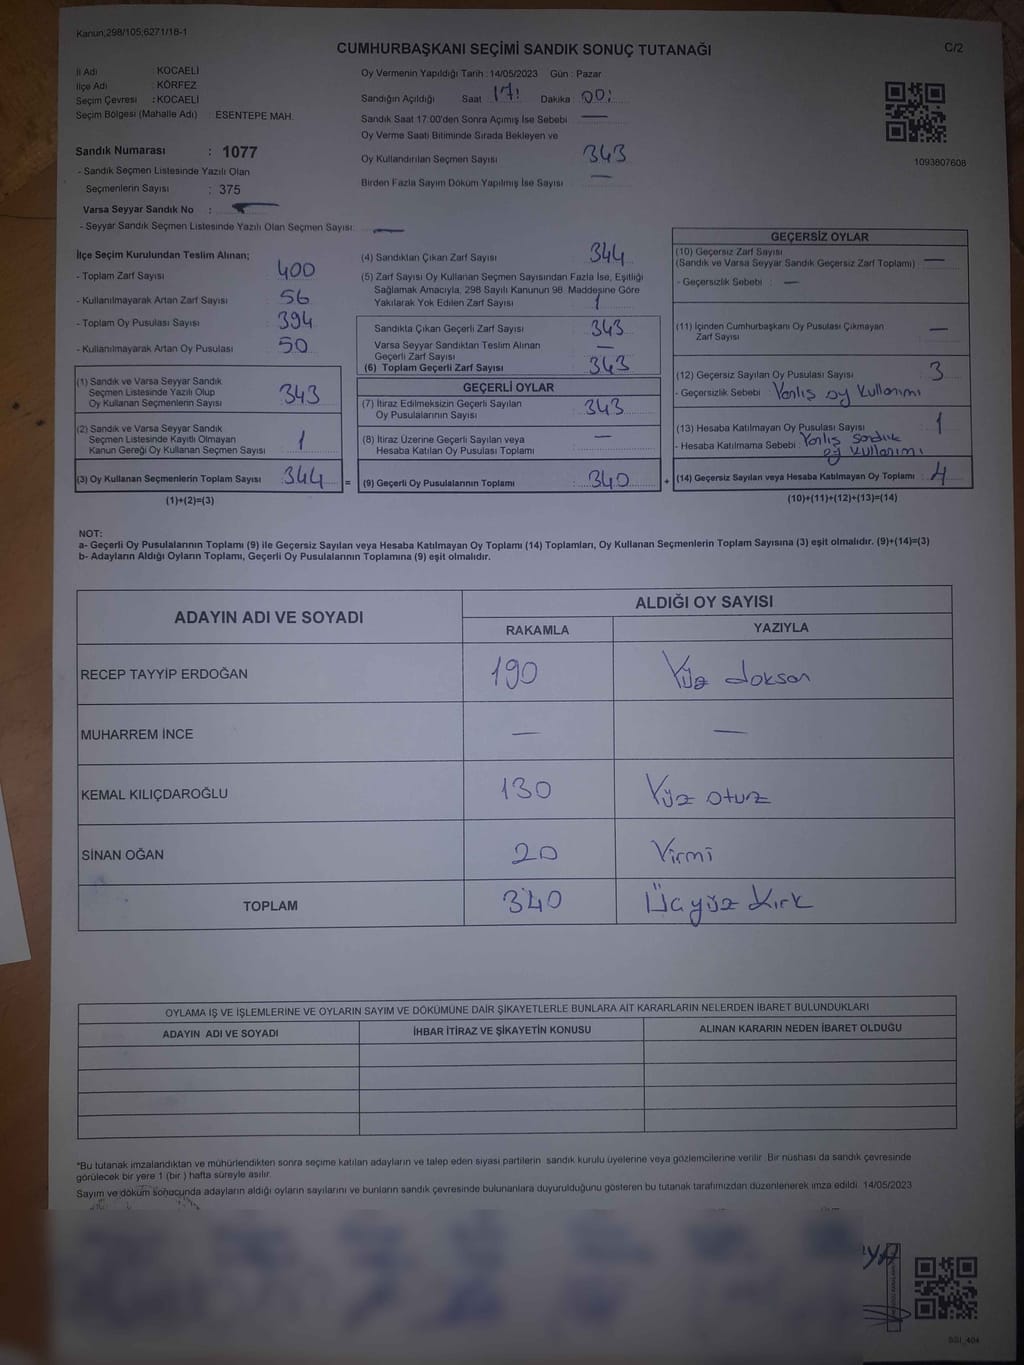 Kanun;298/105;6271/18-1
CUMHURBAŞKANI SEÇİMİ SANDIK SONUÇ TUTANAĞI
C/2
İl Adı : KOCAELİ
İlçe Adı : KÖRFEZ
Seçim Çevresi : KOCAELİ
Seçim Bölgesi (Mahalle Adı) ESENTEPE MAH.
Sandık Numarası : 1077
- Sandık Seçmen Listesinde Yazılı Olan
Seçmenlerin Sayısı : 375
Varsa Seyyar Sandık No : —
- Seyyar Sandık Seçmen Listesinde Yazılı Olan Seçmen Sayısı: —
Oy Vermenin Yapıldığı Tarih : 14/05/2023 Gün : Pazar
Sandığın Açıldığı Saat 17: Dakika 00:
Sandık Saat 17:00'den Sonra Açımış İse Sebebi —
Oy Verme Saati Bitiminde Sırada Bekleyen ve
Oy Kullandırılan Seçmen Sayısı 343
Birden Fazla Sayım Döküm Yapılmış İse Sayısı —
1093807608
İlçe Seçim Kurulundan Teslim Alınan;
- Toplam Zarf Sayısı 400
- Kullanılmayarak Artan Zarf Sayısı 56
- Toplam Oy Pusulası Sayısı 394
- Kullanılmayarak Artan Oy Pusulası 50
(1) Sandık ve Varsa Seyyar Sandık
Seçmen Listesinde Yazılı Olup
Oy Kullanan Seçmenlerin Sayısı 343
(2) Sandık ve Varsa Seyyar Sandık
Seçmen Listesinde Kayıtlı Olmayan
Kanun Gereği Oy Kullanan Seçmen Sayısı 1
(3) Oy Kullanan Seçmenlerin Toplam Sayısı 344 =
(1)+(2)=(3)
(4) Sandıktan Çıkan Zarf Sayısı 344
(5) Zarf Sayısı Oy Kullanan Seçmen Sayısından Fazla İse, Eşitliği
Sağlamak Amacıyla, 298 Sayılı Kanunun 98. Maddesine Göre
Yakılarak Yok Edilen Zarf Sayısı 1
Sandıkta Çıkan Geçerli Zarf Sayısı 343
Varsa Seyyar Sandıktan Teslim Alınan
Geçerli Zarf Sayısı —
(6) Toplam Geçerli Zarf Sayısı 343
GEÇERLİ OYLAR
(7) İtiraz Edilmeksizin Geçerli Sayılan
Oy Pusulalarının Sayısı 343
(8) İtiraz Üzerine Geçerli Sayılan veya
Hesaba Katılan Oy Pusulası Toplamı —
(9) Geçerli Oy Pusulalarının Toplamı 340 +
GEÇERSİZ OYLAR
(10) Geçersiz Zarf Sayısı
(Sandık ve Varsa Seyyar Sandık Geçersiz Zarf Toplamı) —
- Geçersizlik Sebebi : —
(11) İçinden Cumhurbaşkanı Oy Pusulası Çıkmayan
Zarf Sayısı —
(12) Geçersiz Sayılan Oy Pusulası Sayısı 3
- Geçersizlik Sebebi Yanlış oy kullanımı
(13) Hesaba Katılmayan Oy Pusulası Sayısı 1
- Hesaba Katılmama Sebebi Yanlış sandık
oy kullanımı
(14) Geçersiz Sayılan veya Hesaba Katılmayan Oy Toplamı : 4
(10)+(11)+(12)+(13)=(14)
NOT:
a- Geçerli Oy Pusulalarının Toplamı (9) ile Geçersiz Sayılan veya Hesaba Katılmayan Oy Toplamı (14) Toplamları, Oy Kullanan Seçmenlerin Toplam Sayısına (3) eşit olmalıdır. (9)+(14)=(3)
b- Adayların Aldığı Oyların Toplamı, Geçerli Oy Pusulalarının Toplamına (9) eşit olmalıdır.
ADAYIN ADI VE SOYADI
ALDIĞI OY SAYISI
RAKAMLA YAZIYLA
RECEP TAYYİP ERDOĞAN 190 Yüz doksan
MUHARREM İNCE — —
KEMAL KILIÇDAROĞLU 130 Yüz otuz
SİNAN OĞAN 20 Yirmi
TOPLAM 340 Üçyüz Kırk
OYLAMA İŞ VE İŞLEMLERİNE VE OYLARIN SAYIM VE DÖKÜMÜNE DAİR ŞİKAYETLERLE BUNLARA AİT KARARLARIN NELERDEN İBARET BULUNDUKLARI
ADAYIN ADI VE SOYADI İHBAR İTİRAZ VE ŞİKAYETİN KONUSU ALINAN KARARIN NEDEN İBARET OLDUĞU
*Bu tutanak imzalandıktan ve mühürlendikten sonra seçime katılan adayların ve talep eden siyasi partilerin sandık kurulu üyelerine veya gözlemcilerine verilir. Bir nüshası da sandık çevresinde
görülecek bir yere 1 (bir ) hafta süreyle asılır.
Sayım ve döküm sonucunda adayların aldığı oyların sayılarını ve bunların sandık çevresinde bulunanlara duyurulduğunu gösteren bu tutanak tarafımızdan düzenlenerek imza edildi. 14/05/2023